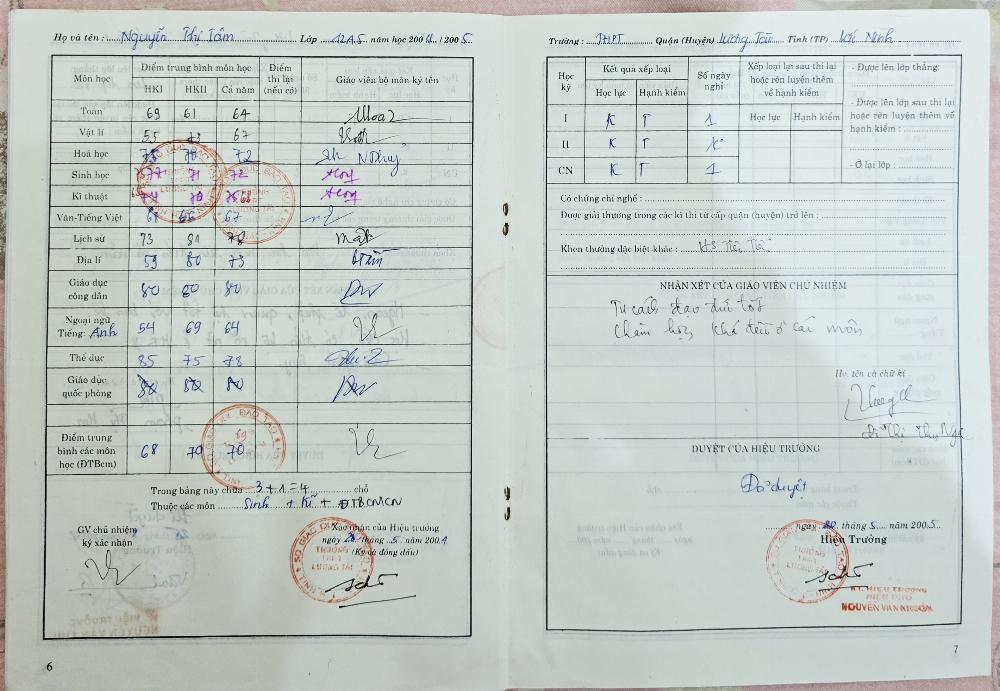 Họ và tên : Nguyễn Thị Tâm Lớp 12A5 năm học 2004 / 2005
Môn học
Điểm trung bình môn học
HKI HKII Cả năm
Điểm thi lại (nếu có)
Giáo viên bộ môn ký tên
Toán 69 61 64
Vật lí 55 67
Hoá học 72
Sinh học 77 71 72
Kĩ thuật 70
Văn-Tiếng Việt 67
Lịch sử 73 81 78
Địa lí 59 80 73
Giáo dục công dân 80 80 80
Ngoại ngữ
Tiếng: Anh 54 69 64
Thể dục 85 75 78
Giáo dục quốc phòng
Điểm trung bình các môn học (ĐTBcm) 68 70 70
Trong bảng này chữa 3+1=4 chỗ
Thuộc các môn Sinh + Kĩ + ĐTBCMCN
GV chủ nhiệm
ký xác nhận
Xác nhận của Hiệu trưởng
ngày tháng 5 năm 200
(Ký và đóng dấu)
TRƯỜNG
LƯƠNG TÀI
6
Trường : THPT Quận (Huyện) Lương Tài Tỉnh (TP) Bắc Ninh
Học kỳ
Kết quả xếp loại
Học lực Hạnh kiểm
Số ngày nghỉ
Xếp loại lại sau thi lại hoặc rèn luyện thêm về hạnh kiểm
Học lực Hạnh kiểm
I K T 1
II K T
CN K T 1
- Được lên lớp thẳng:
- Được lên lớp sau thi lại hoặc rèn luyện thêm về hạnh kiểm :
- Ở lại lớp :
Có chứng chỉ nghề :
Được giải thưởng trong các kì thi từ cấp quận (huyện) trở lên :
Khen thưởng đặc biệt khác : HS Tiên Tiến
NHẬN XÉT CỦA GIÁO VIÊN CHỦ NHIỆM
Tư cách đạo đức tốt
Chăm học, khá đều ở các môn
Họ, tên và chữ kí
DUYỆT CỦA HIỆU TRƯỞNG
Đã duyệt
ngày 20 tháng 5 năm 2005
Hiệu Trưởng
KT. HIỆU TRƯỞNG
HIỆU PHÓ
7